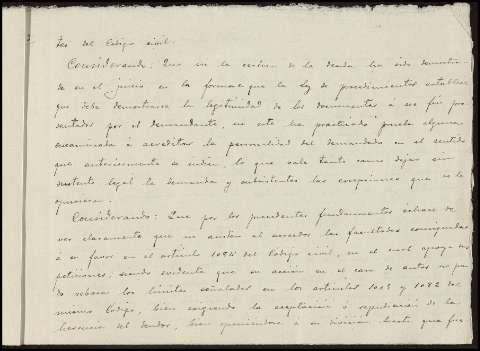 tes del Código civil.
Considerando: Que ni la escritura de la deuda ha sido demostra-
da en el juicio en la forma que la ley de procedimientos establece
que debe demostrarse la legitimidad de los documentos á ese fin pre-
sentados por el demandante, ni este ha practicado prueba alguna
encaminada á acreditar la personalidad del demandado en el sentido
que anteriormente se indica, lo que vale tanto como dejar sin
sustento legal la demanda y subsistentes las excepciones que se le
opusieron.
Considerando: Que por los precedentes fundamentos échase de
ver claramente que no asisten al acreedor las facultades consignadas
á su favor en el artículo 1084 del Código civil, en el cual apoya sus
peticiones, siendo evidente que su acción en el caso de autos no pu-
do rebasar los límites señalados en los artículos 1005 y 1082 del
mismo Código, bien exigiendo la aceptación ó repudiación de la
herencia del deudor, bien oponiéndose á su división hasta que fue